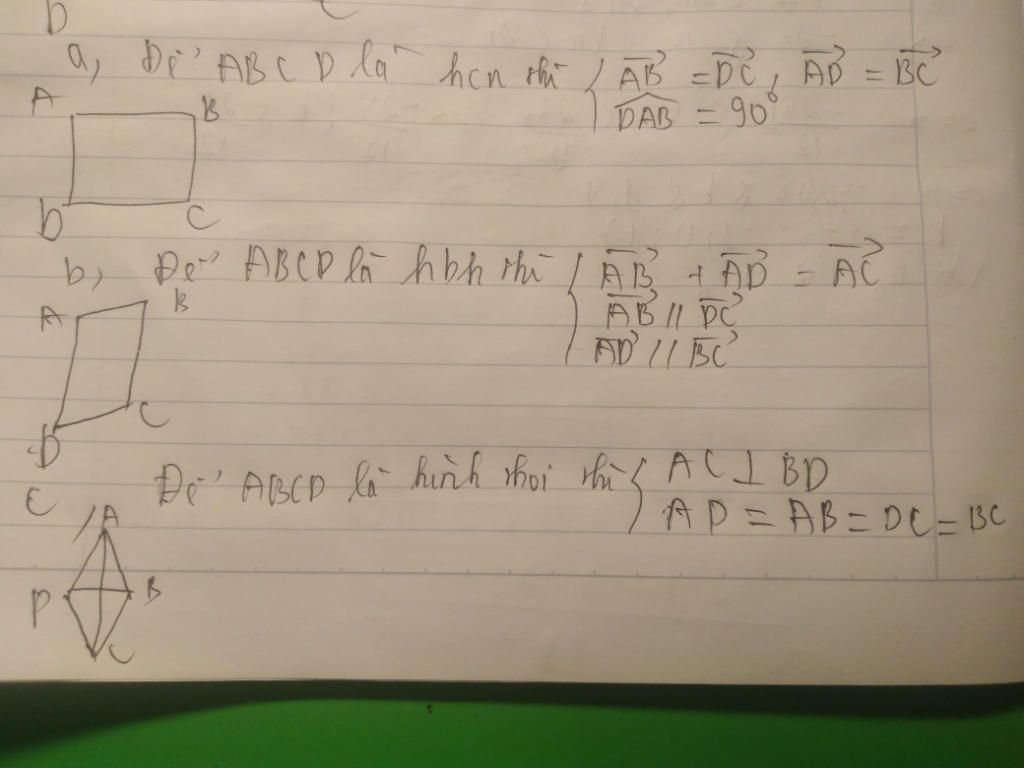 D C
a, Để ABCD là hcn thì { \overrightarrow{AB} = \overrightarrow{DC}, \overrightarrow{AD} = \overrightarrow{BC}
\widehat{DAB} = 90°
A B
D C
b, Để ABCD là hbh thì { \overrightarrow{AB} + \overrightarrow{AD} = \overrightarrow{AC}
\overrightarrow{AB} // \overrightarrow{DC}
\overrightarrow{AD} // \overrightarrow{BC}
A B
D C
C, Để ABCD là hình thoi thì { AC ⊥ BD
AD = AB = DC = BC
A
D B
C